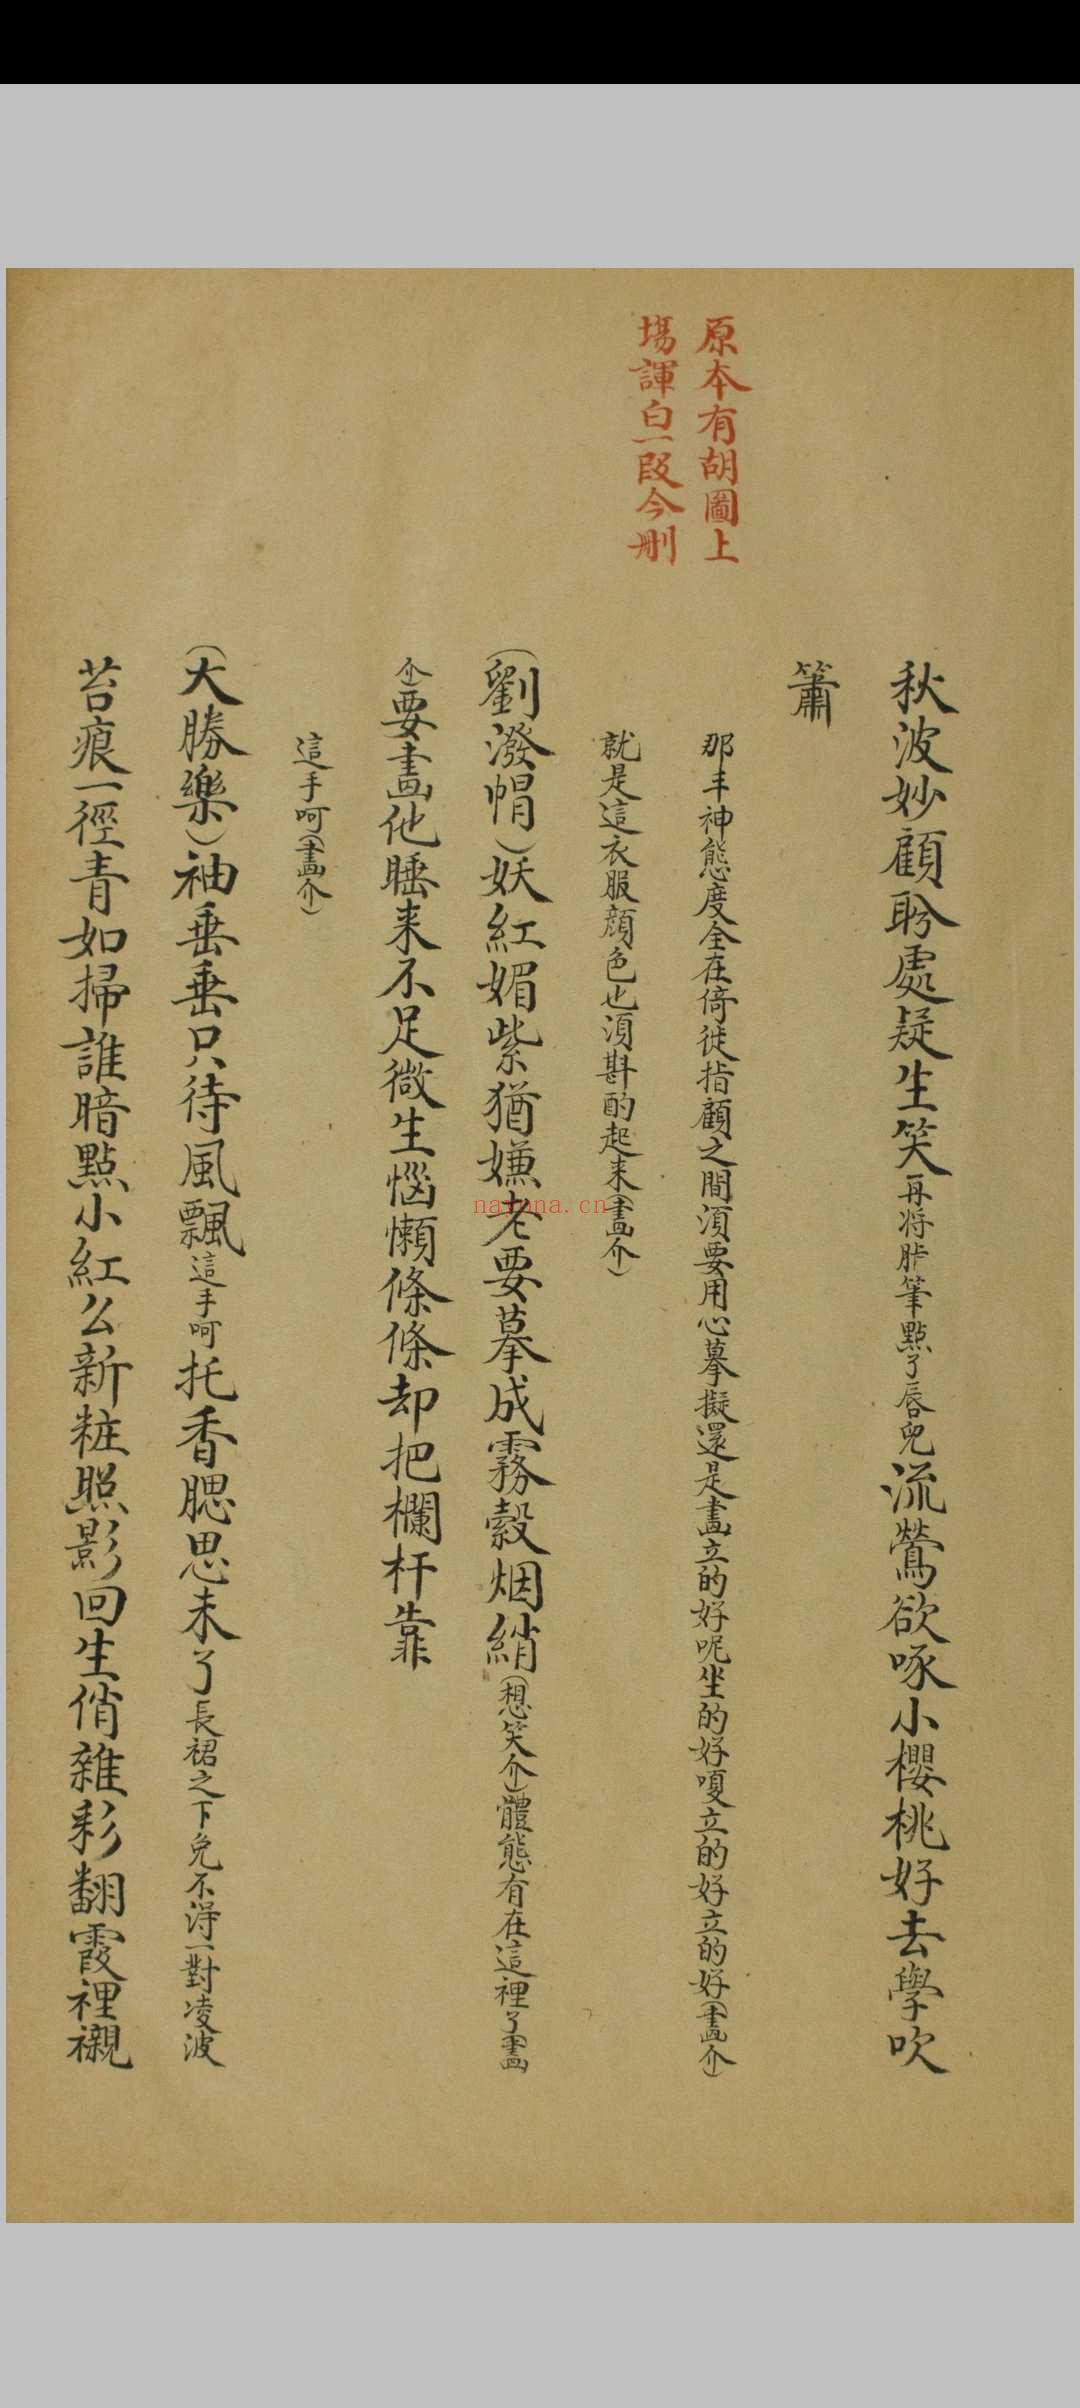 秋波妙顧盼處疑生笑再将胩筆點了唇皃流鶯欲啄小櫻桃好去學吹
簫
原本有胡圖上
塲諢白一段今刪
那丰神態度全在倚徙指顧之間湏要用心摹擬還是畫立的好呢坐的好嗄立的好立的好(畫介)
就是這衣服顔色也湏斟酌起来(畫介)
(劉潑帽)妖紅媚紫猶嫌老要摹成霧縠烟綃(想笑介)體態有在這裡了(畫
介)要畫他睡来不足微生惱懶條條却把欄杆靠
這手呵(畫介)
(大勝樂)袖垂垂只待風飄這手呵托香腮思未了長裙之下免不淂一對凌波
苔痕一徑青如掃誰暗點小紅么新粧照影回生俏雜彩翻霞裡襯
nayona.cn